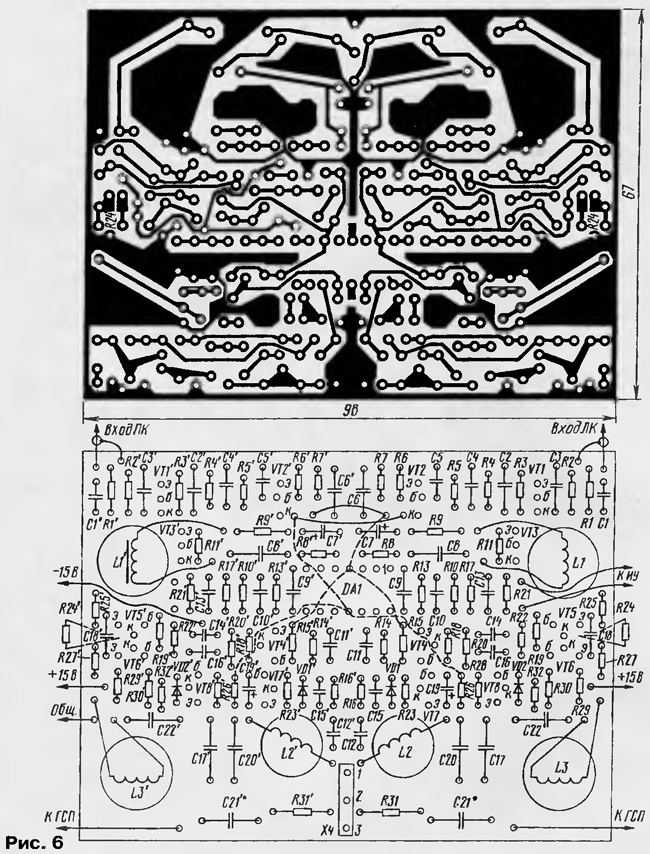 R24'
R24
67
98
Вход ПК
Вход ЛК
R2' C3' R3' C2' R4' C4' R5' C5' VT2' R6' R7' R7 R6 VT2 C5 R5 C4 R4 C2 R3 VT1 C3 R2
VT1'
C6' C6
C1' R1' R1 C1
VT3' R9' C7' C7 R9 VT3
L1' R11' C8' R8' R8 C8 R11 L1
-15В К ИУ
R17' R10' R13' C9' DA1 C9 R13 R10 R17
R21' C13' C10' C10 C13 R21
R24' R25' VT5' R22' C14' R20' R15' R14' C11' C11 R14 R15 R18 C14 R22 VT5 R25 R24
C18' C16' VT4' VT4 R20 C16 C18
R27' VT6' R19' VD2' VT7' VD1' VD1 R28 VD2 R19 VT6 R27
+15В +15В
R29' R32' VT8' R16' R16 C19 VT8 R32 R30
R30' R23' C15' C12' C15 R23 VT7 R29
Общ. C22' C12 C22
C17' C20' L2' L2 C20 C17
L3' L3
1
2
К ГСП C21'* R31' R31 C21* К ГСП
X4 3
Рис. 6